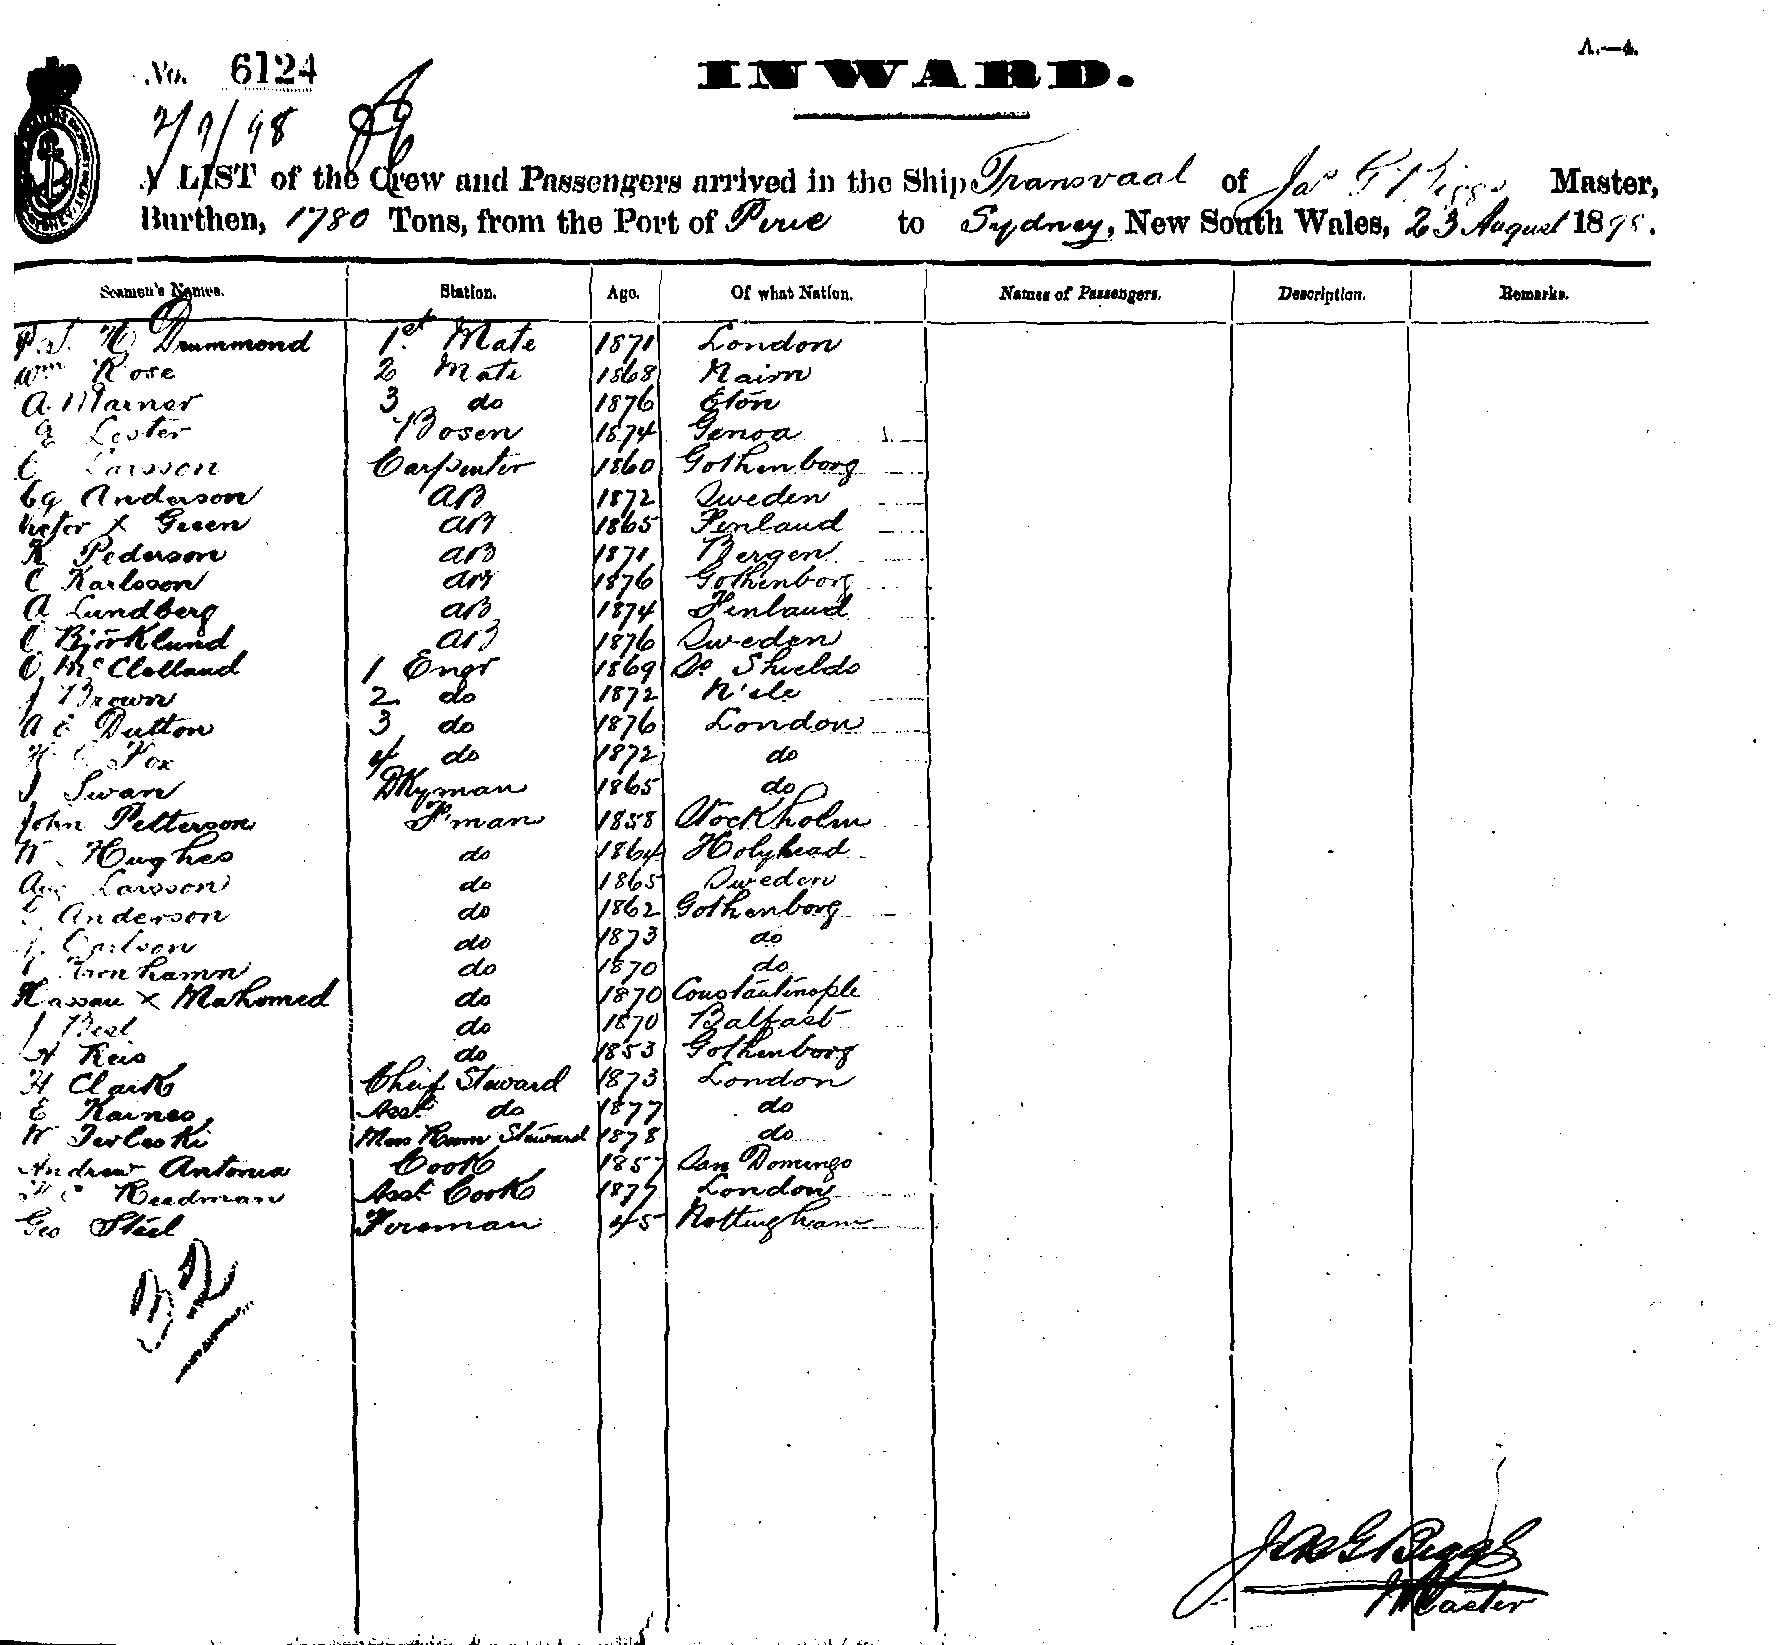 A.—4.
No. 6124
INWARD.
2/9/98
A LIST of the Crew and Passengers arrived in the Ship Transvaal of Jas G Biggs Master,
Burthen, 1780 Tons, from the Port of Pirie to Sydney, New South Wales, 23 August 1898.
Seamen's Names. Station. Age. Of what Nation. Names of Passengers. Description. Remarks.
H Drummond 1st Mate 1871 London
Wm Rose 2 Mate 1868 Nairn
A. Marner 3 do 1876 Eton
Lester Bosen 1874 Genoa
C Larsson Carpenter 1860 Gothenborg
Anderson AB 1872 Sweden
x Green AB 1865 Finland
K Pederson AB 1871 Bergen
C Karlsson AB 1876 Gothenborg
A Lundberg AB 1874 Finland
C Björklund AB 1876 Sweden
C McClelland 1 Engr 1869 So Shields
J Brown 2 do 1872 N'cle
A E Dutton 3 do 1876 London
Fox 4 do 1872 do
J Swan DKyman 1865 do
John Petterson F'man 1858 Stockholm
W Hughes do 1864 Holyhead
Aug Larsson do 1865 Sweden
Anderson do 1862 Gothenborg
Carlson do 1873 do
Kronhamn do 1870 do
Hassan x Mahomed do 1870 Constantinople
J Best do 1870 Balfast
A Reis do 1853 Gothenborg
H Clark Chief Steward 1873 London
E Karnes Asst do 1877 do
W Terleski Mess Room Steward 1878 do
Andrew Antonia Cook 1857 San Domingo
Reedman Asst Cook 1877 London
Geo Steel Fireman 45 Nottingham
32
Jas G Biggs
Master